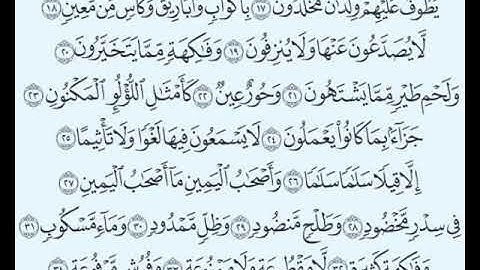 يَطُوفُ عَلَيْهِمْ وِلْدَٰنٌ مُّخَلَّدُونَ ١٧ بِأَكْوَابٍ وَأَبَارِيقَ وَكَأْسٍ مِّن مَّعِينٍ ١٨
لَّا يُصَدَّعُونَ عَنْهَا وَلَا يُنزِفُونَ ١٩ وَفَٰكِهَةٍ مِّمَّا يَتَخَيَّرُونَ ٢٠
وَلَحْمِ طَيْرٍ مِّمَّا يَشْتَهُونَ ٢١ وَحُورٌ عِينٌ ٢٢ كَأَمْثَٰلِ ٱللُّؤْلُؤِ ٱلْمَكْنُونِ ٢٣
جَزَآءًۢ بِمَا كَانُوا۟ يَعْمَلُونَ ٢٤ لَا يَسْمَعُونَ فِيهَا لَغْوًا وَلَا تَأْثِيمًا ٢٥
إِلَّا قِيلًا سَلَٰمًا سَلَٰمًا ٢٦ وَأَصْحَٰبُ ٱلْيَمِينِ مَآ أَصْحَٰبُ ٱلْيَمِينِ ٢٧
فِى سِدْرٍ مَّخْضُودٍ ٢٨ وَطَلْحٍ مَّنضُودٍ ٢٩ وَظِلٍّ مَّمْدُودٍ ٣٠ وَمَآءٍ مَّسْكُوبٍ ٣١
وَفَٰكِهَةٍ كَثِيرَةٍ ٣٢ لَّا مَقْطُوعَةٍ وَلَا مَمْنُوعَةٍ ٣٣ وَفُرُشٍ مَّرْفُوعَةٍ ٣٤